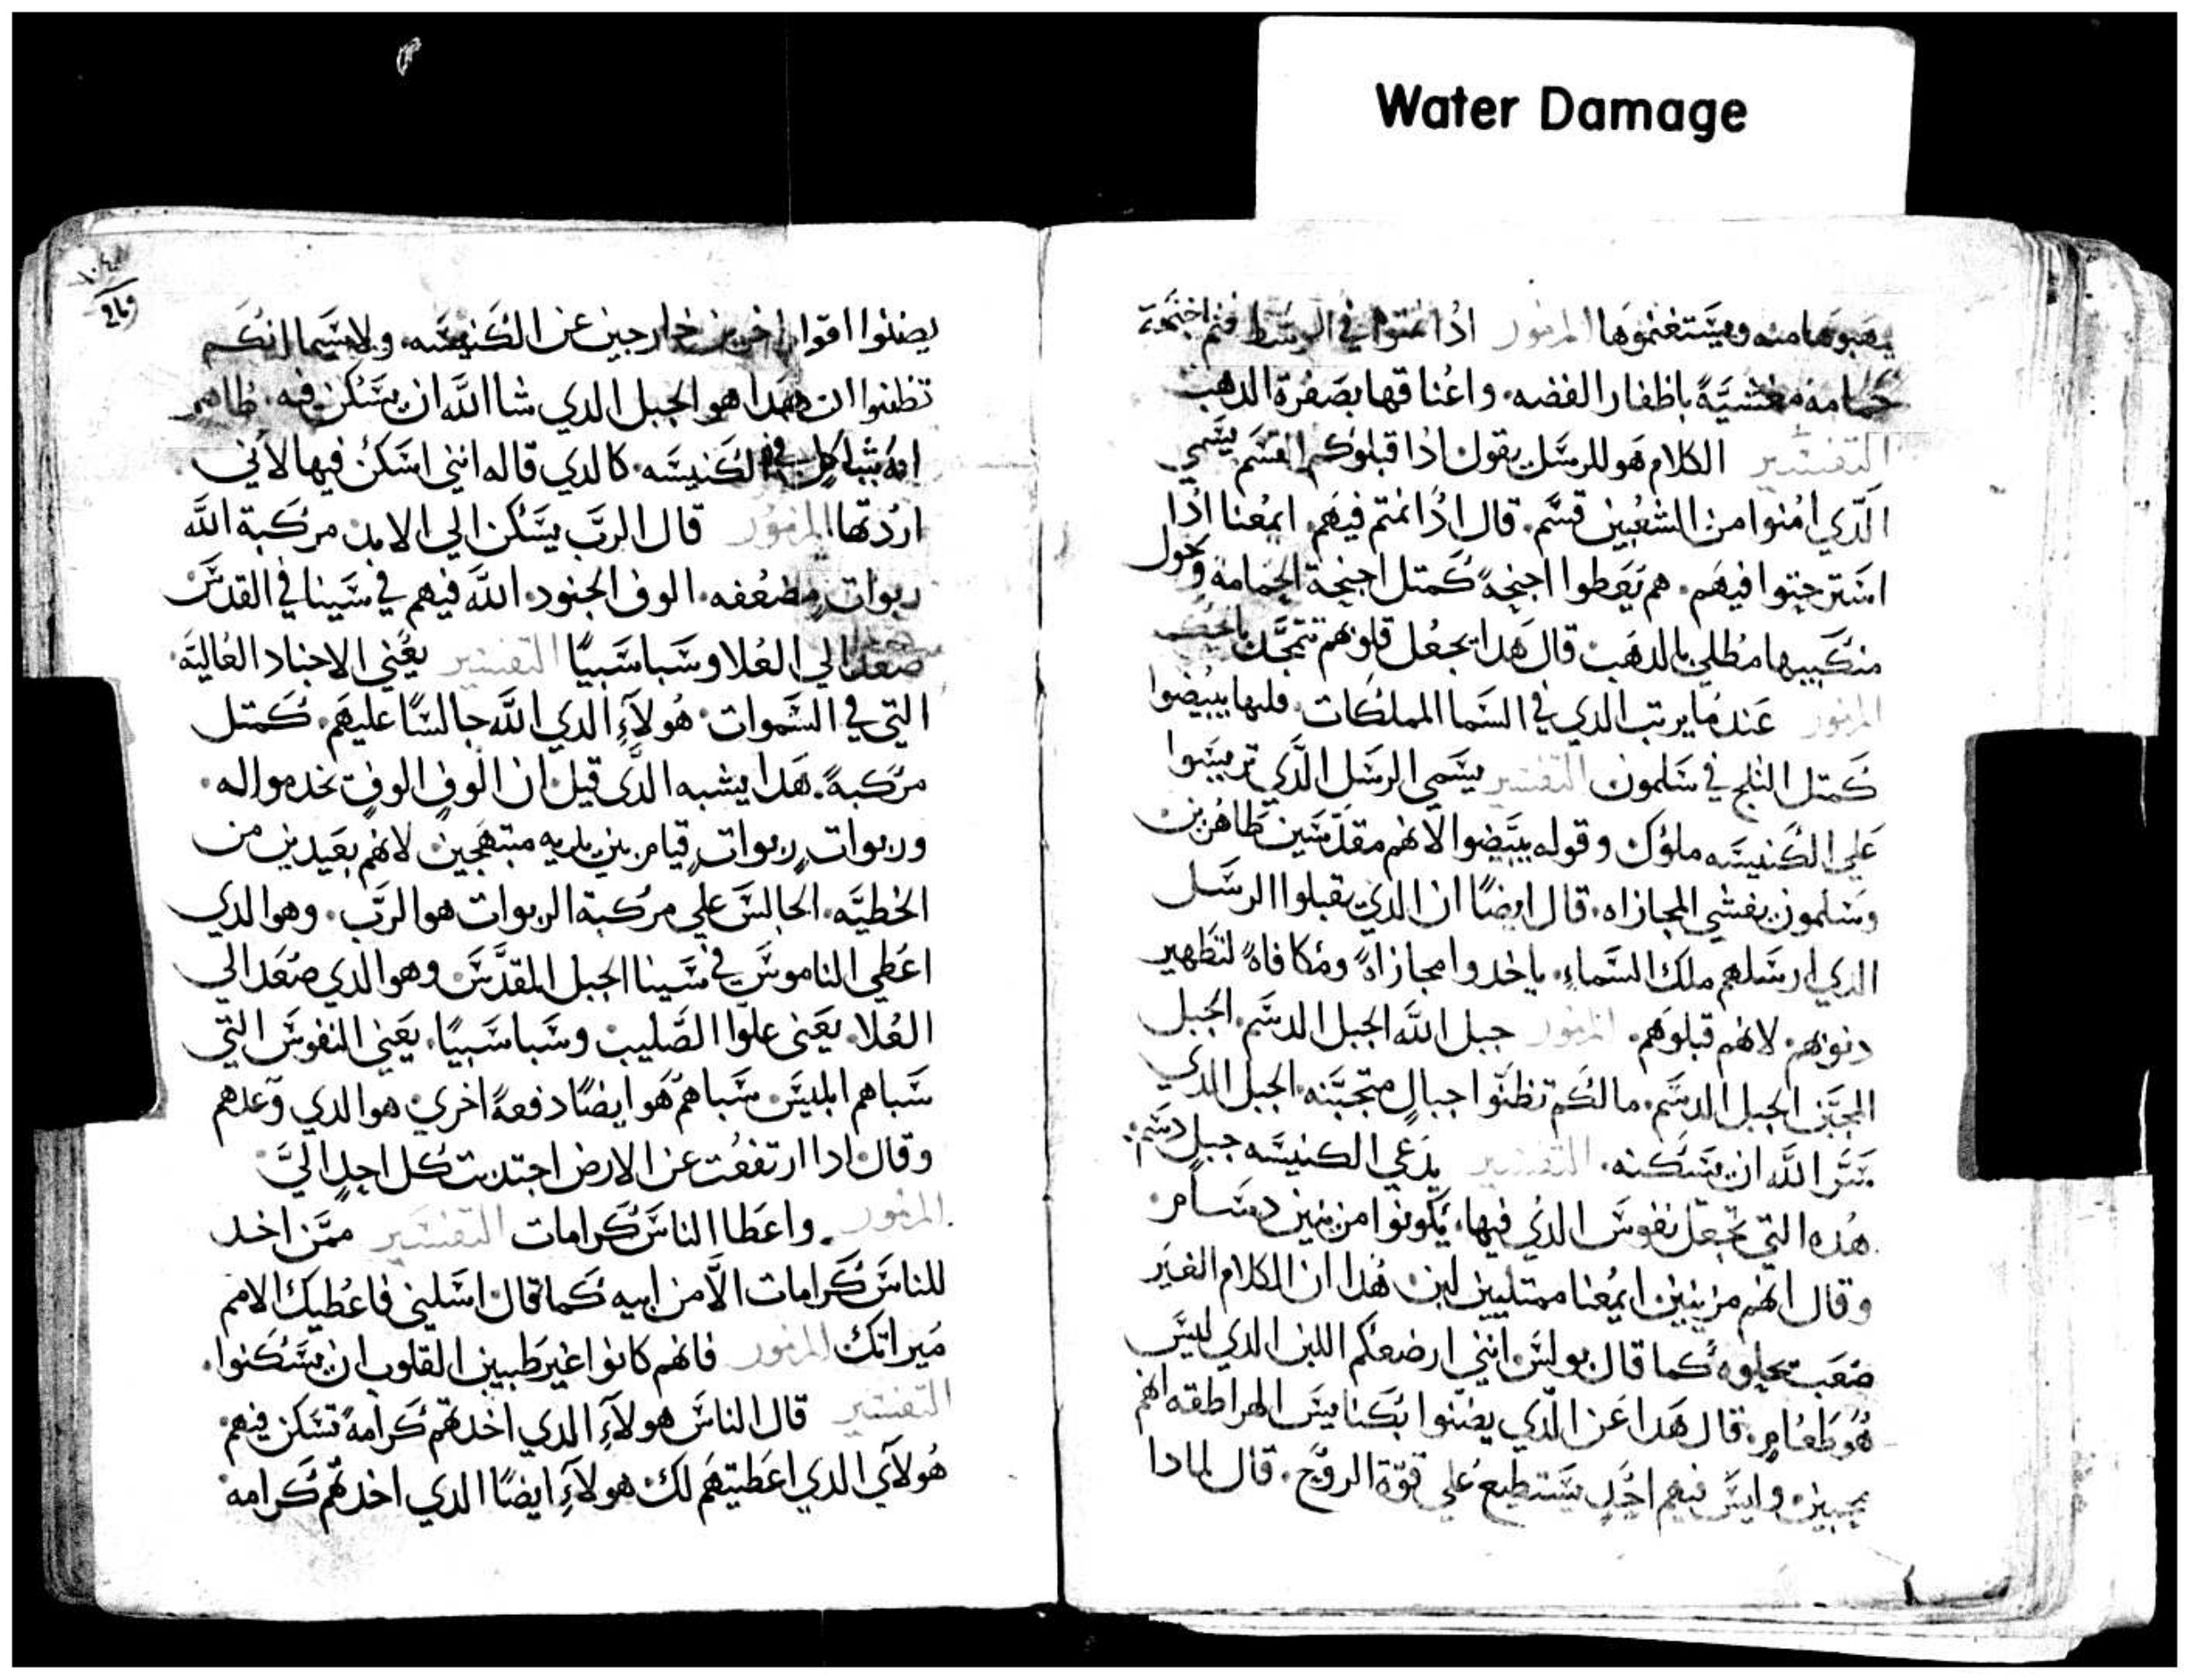 Water Damage
يهبوها منه ويستغنموها المزمور اذا نمتوا في الوسط فتم اجنحة
حمامه مغشيةً باظفار الفضه. واعناقها بصفرة الدهب
التفسير الكلام هو للرسل يقول اذا قبلوكم القسم يسمي
الدي امنوا من الشعبين قسم. قال اذا نمتم فيهم. ايمعنا اذا
استرحتوا فيهم. هم يعطوا اجنحةً كمتل اجنحة الحمامه وحول
منكبيها مطلي بالدهب قال هدا يجعل قلوبهم تتمجد بالحكمه
المزمور عندما يرتب الدي في السما المملكات. فلها يبيضوا
كمتل التلج في سلمون التفسير يسمي الرسل الدي تريسوا
علي الكنيسه ملوك وقوله يبيضوا لانهم مقدسين طاهرين
وسلمون يفسي المجازاه. قال ايضًا ان الدي يقبلوا الرسل
الدي ارسلهم ملك السماء. ياخدوا مجازاةً ومكافاةً لتطهير
دنوبهم. لانهم قبلوهم. المزمور جبل الله الجبل الدسم. الجبل
المجبن الجبل الدسم. مالكم تظنوا جبالٍ متجبنه. الجبل الدي
سر الله ان يسكنه. التفسير يدعي الكنيسه جبلٍ دسم.
هده التي تجعل نفوس الدي فيها. يكونوا مزينين دسامٍ
وقال انهم مزينين ايمعنا ممتليين لبن هدا ان الكلام الغير
صعب تحليوه كما قال بولس انني ارضعكم اللبن الدي ليس
هو طعامٍ. قال هدا عن الدي يضنوا بكنايس الهراطقه انهم
مجبنين. وليس فيهم احد يستطيع علي قوة الروح. قال لمادا
٢٤٩
يضنوا اقوام اخرين خارجين عن الكنيسه. ولاسيما انكم
تظنوا ان هدا هو الجبل الدي شا الله ان يسكن فيه. ظاهر
انه يشاكل في الكنيسه. كالدي قاله انني اسكن فيها لاني
اردتها المزمور قال الرب يسكن الي الابد. مركبة الله
ربوات مضعفه. الوف الجنود. الله فيهم في سينا في القدس
صعد الي العلا وسبا سبيًا التفسير يعني الاجناد العاليه
التي في السموات. هولآءِ الدي الله جالسًا عليهم. كمتل
مركبةً. هدا يشبه الدي قيل ان الوفٍ الوفٍ تخدموا له.
وربوات ربوات قيام بين يديه مبتهجين لانهم بعيدين من
الخطيه. الجالس علي مركبة الربوات هو الرب. وهو الدي
اعطي الناموس في سينا الجبل المقدس وهو الدي صعد الي
العلا. يعني علوا الصليب وسبا سبيًا. يعني النفوس التي
سباهم ابليس سباهم هو ايضًا دفعةً اخري. هو الدي وعدهم
وقال ادا ارتفعت عن الارض اجتدبت كل احدٍ اليَّ
المزمور واعطا الناس كرامات التفسير ممن اخد
للناس كرامات الا من ابيه كما قال اسلني فاعطيك الامم
ميراتك المزمور فانهم كانوا غير طبيين القلوب ان يسكنوا.
التفسير قال الناس هولآءِ الدي اخدتهم كرامةً تسكن فيهم
هولآي الدي اعطيتهم لك هولآءِ ايضًا الدي اخدتهم كرامه